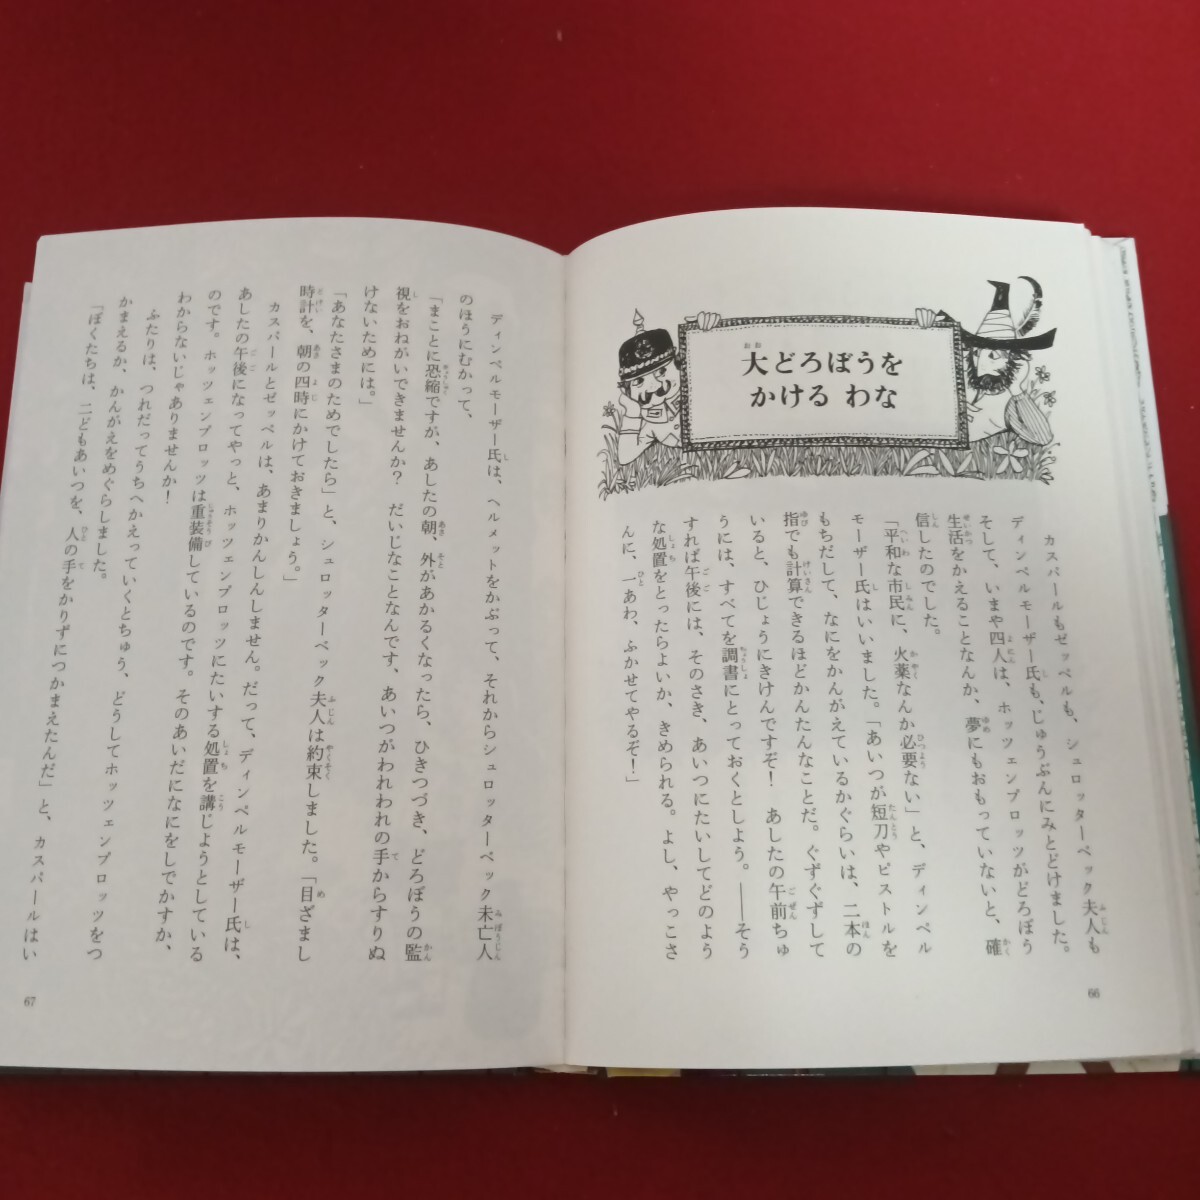 大どろぼうを
かける わな
カスパールもゼッペルも、シュロッターベック夫人も
ディンペルモーザー氏も、じゅうぶんにみとどけました。
そして、いまや四人は、ホッツェンプロッツがどろぼう
生活をかえることなんか、夢にもおもっていないと、確
信したのでした。
「平和な市民に、火薬なんか必要ない」と、ディンペル
モーザー氏はいいました。「あいつが短刀やピストルを
もちだして、なにをかんがえているかぐらいは、二本の
指でも計算できるほどかんたんなことだ。ぐずぐずして
いると、ひじょうにきけんですぞ！　あしたの午前ちゅ
うには、すべてを調書にとっておくとしよう。――そう
すれば午後には、そのさき、あいつにたいしてどのよう
な処置をとったらよいか、きめられる。よし、やっこさ
んに、一あわ、ふかせてやるぞ！」
66
ディンペルモーザー氏は、ヘルメットをかぶって、それからシュロッターベック未亡人
のほうにむかって、
「まことに恐縮ですが、あしたの朝、外があかるくなったら、ひきつづき、どろぼうの監
視をおねがいできませんか？　だいじなことなんです、あいつがわれわれの手からすりぬ
けないためには。」
「あなたさまのためでしたら」と、シュロッターベック夫人は約束しました。「目ざまし
時計を、朝の四時にかけておきましょう。」
カスパールとゼッペルは、あまりかんしんしません。だって、ディンペルモーザー氏は、
あしたの午後になってやっと、ホッツェンプロッツにたいする処置を講じようとしている
のです。ホッツェンプロッツは重装備しているのです。そのあいだになにをしでかすか、
わからないじゃありませんか！
ふたりは、つれだってうちへかえっていくとちゅう、どうしてホッツェンプロッツをつ
かまえるか、かんがえをめぐらしました。
「ぼくたちは、二どもあいつを、人の手をかりずにつかまえたんだ」と、カスパールはい
67